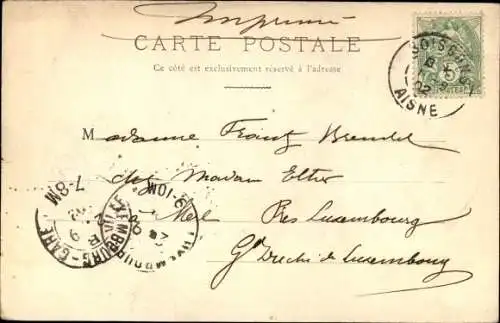 Imprimé
CARTE POSTALE
Ce côté est exclusivement réservé à l'adresse
SOISSONS
AISNE
02
5
Madame Frantz Brendel
chez Madame Elter
Merl Près Luxembourg
Gd Duché de Luxembourg
7-8M
LUXEMBOURG-GARE
9-10M
LUXEMBOURG-VILLE